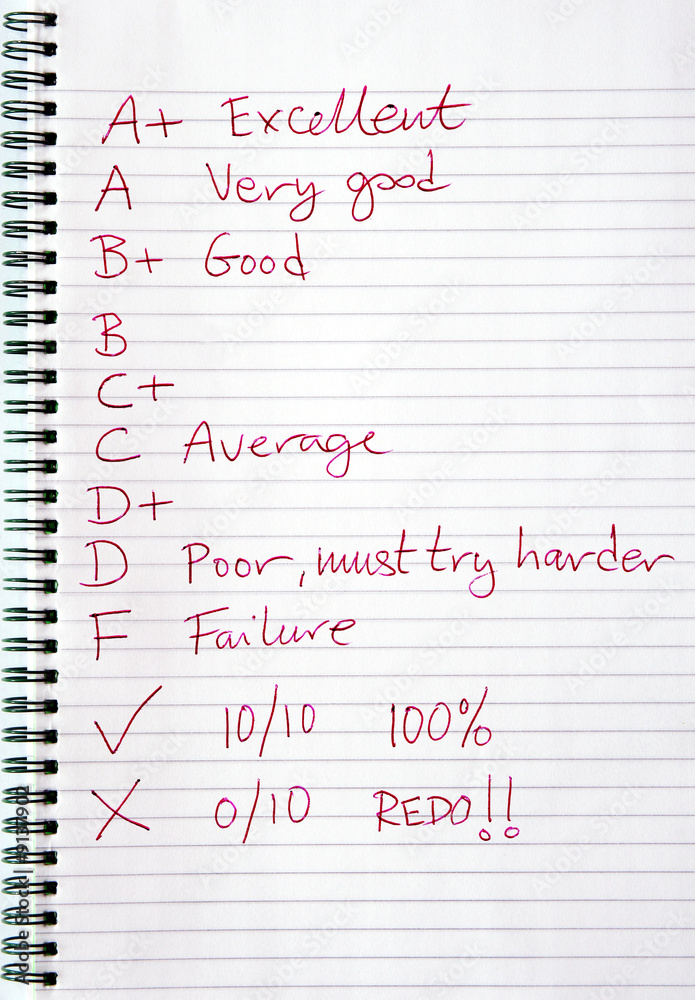 A+ Excellent
A Very good
B+ Good
B
C+
C Average
D+
D Poor, must try harder
F Failure
✓ 10/10 100%
X 0/10 REDO!!
Adobe Stock | #9137902